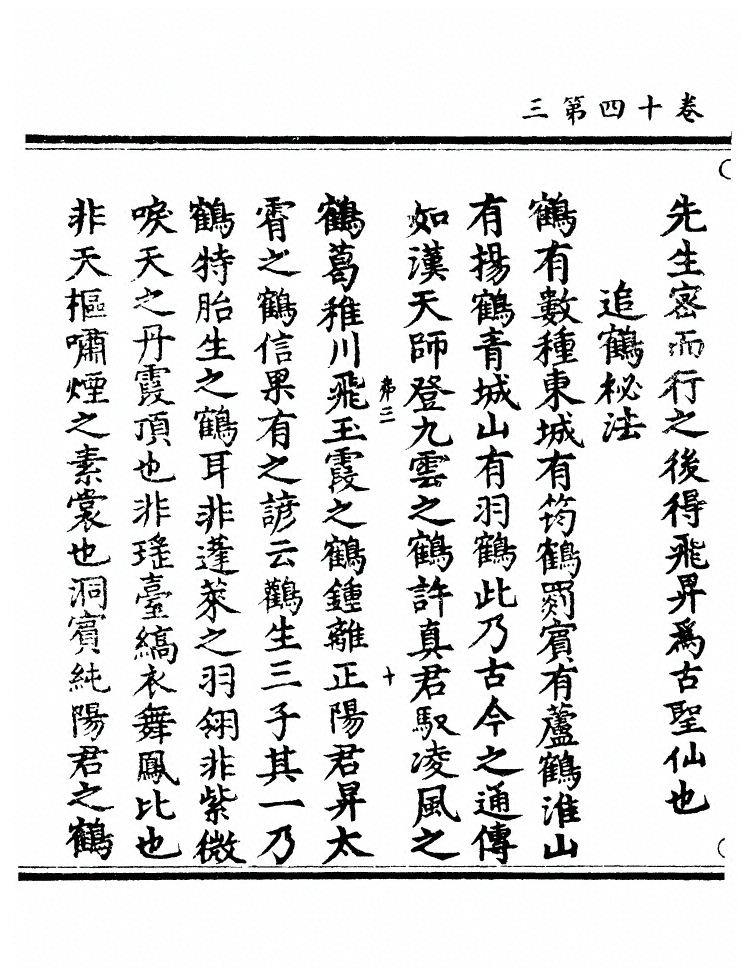 卷十四第三
先生密而行之後得飛昇爲古聖仙也
追鶴秘法
鶴有數種東城有筠鶴罽賓有蘆鶴淮山
有揚鶴青城山有羽鶴此乃古今之通傳
如漢天師登九雲之鶴許真君馭凌風之
弟二
十
鶴葛稚川飛玉霞之鶴鍾離正陽君昇太
霄之鶴信果有之諺云鸛生三子其一乃
鶴特胎生之鶴耳非蓬萊之羽翎非紫微
唳天之丹霞頂也非瑤臺縞衣舞鳳比也
非天樞嘯煙之素裳也洞賓純陽君之鶴